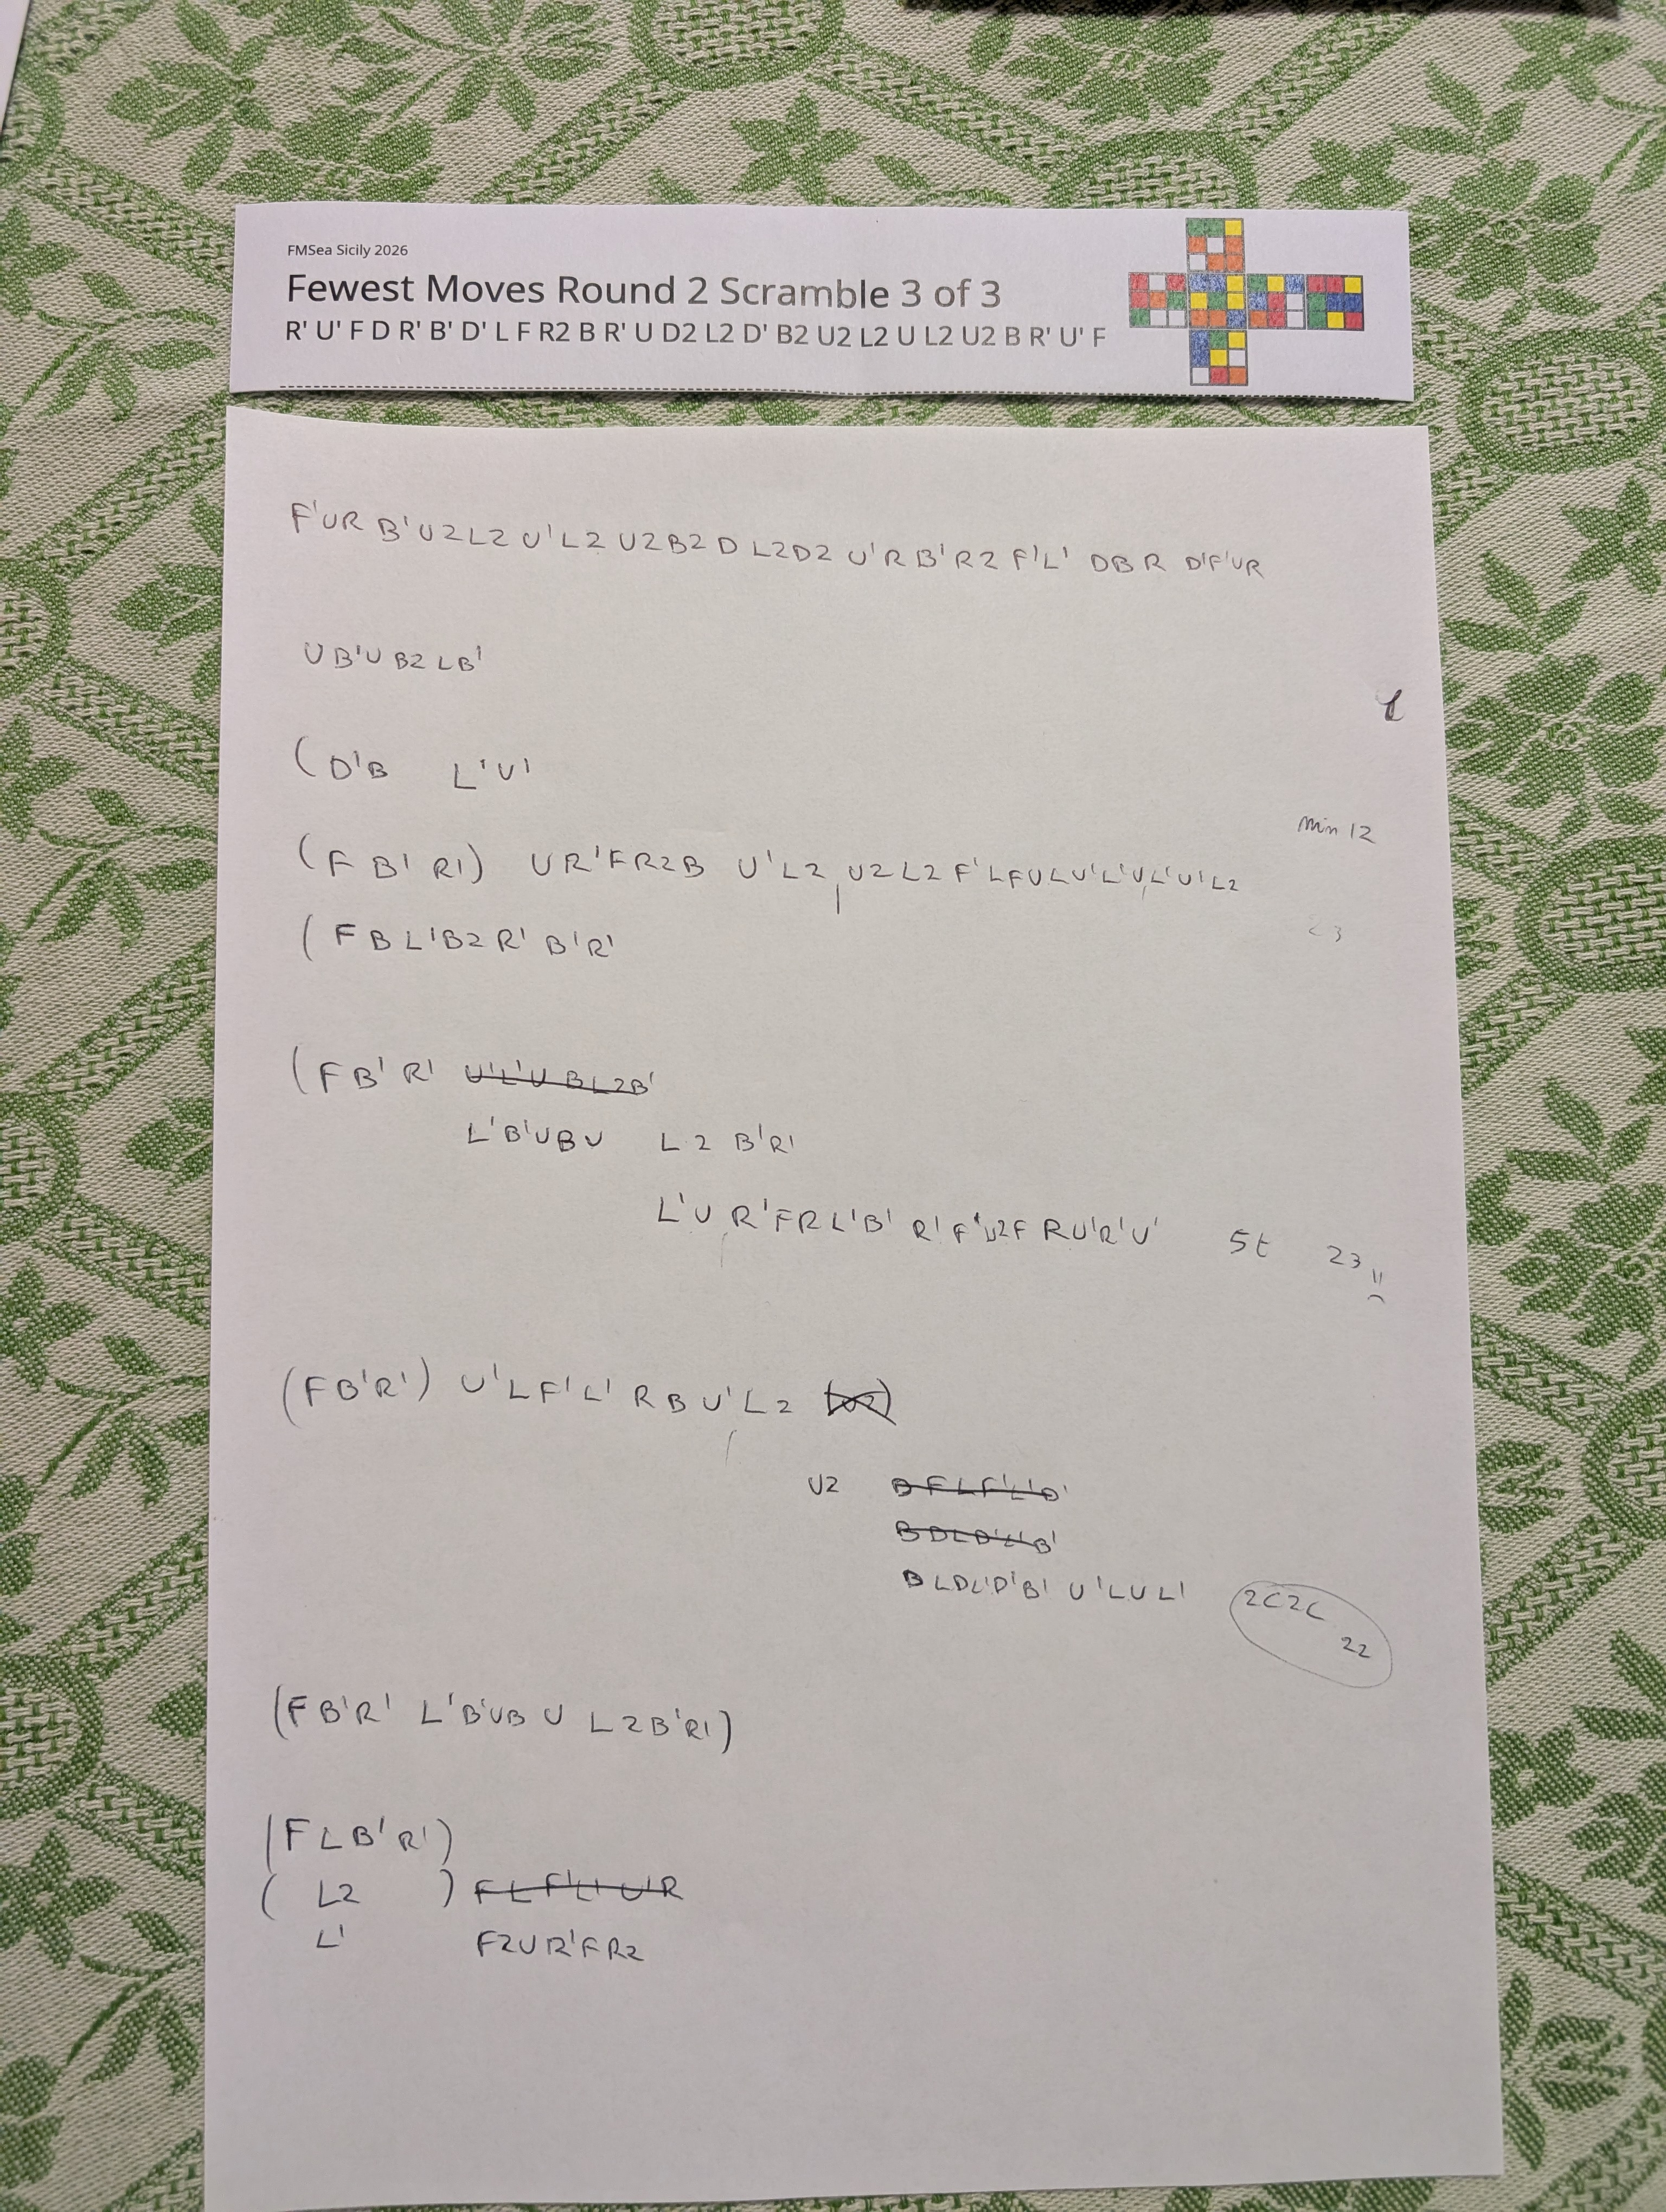 FMSea Sicily 2026
Fewest Moves Round 2 Scramble 3 of 3
R' U' F D R' B' D' L F R2 B R' U D2 L2 D' B2 U2 L2 U L2 U2 B R' U' F
F'UR B'U2L2 U'L2 U2B2 D L2D2 U'R B'R2 F'L' DBR D'F'UR
UB'U B2 LB'
1
(D'B L'U'
min 12
(F B' R') UR'FR2B U'L2 U2L2 F'LFULU'L'UL'U'L2
23
(FBL'B2R' B'R'
(FB'R' U'L'UBL2B'
L'B'UBU L2 B'R'
L'U R'FRL'B' R'F'U2F RU'R'U' 5t 23
(FB'R') U'LF'L' RBU'L2
U2 BFLF'L'B'
BDLD'L'B'
BLDL'D'B' U'LUL' 2C2C
22
(FB'R' L'B'UBU L2B'R')
(FLB'R')
( L2 ) FLF'L'U'R
L' F2UR'FR2